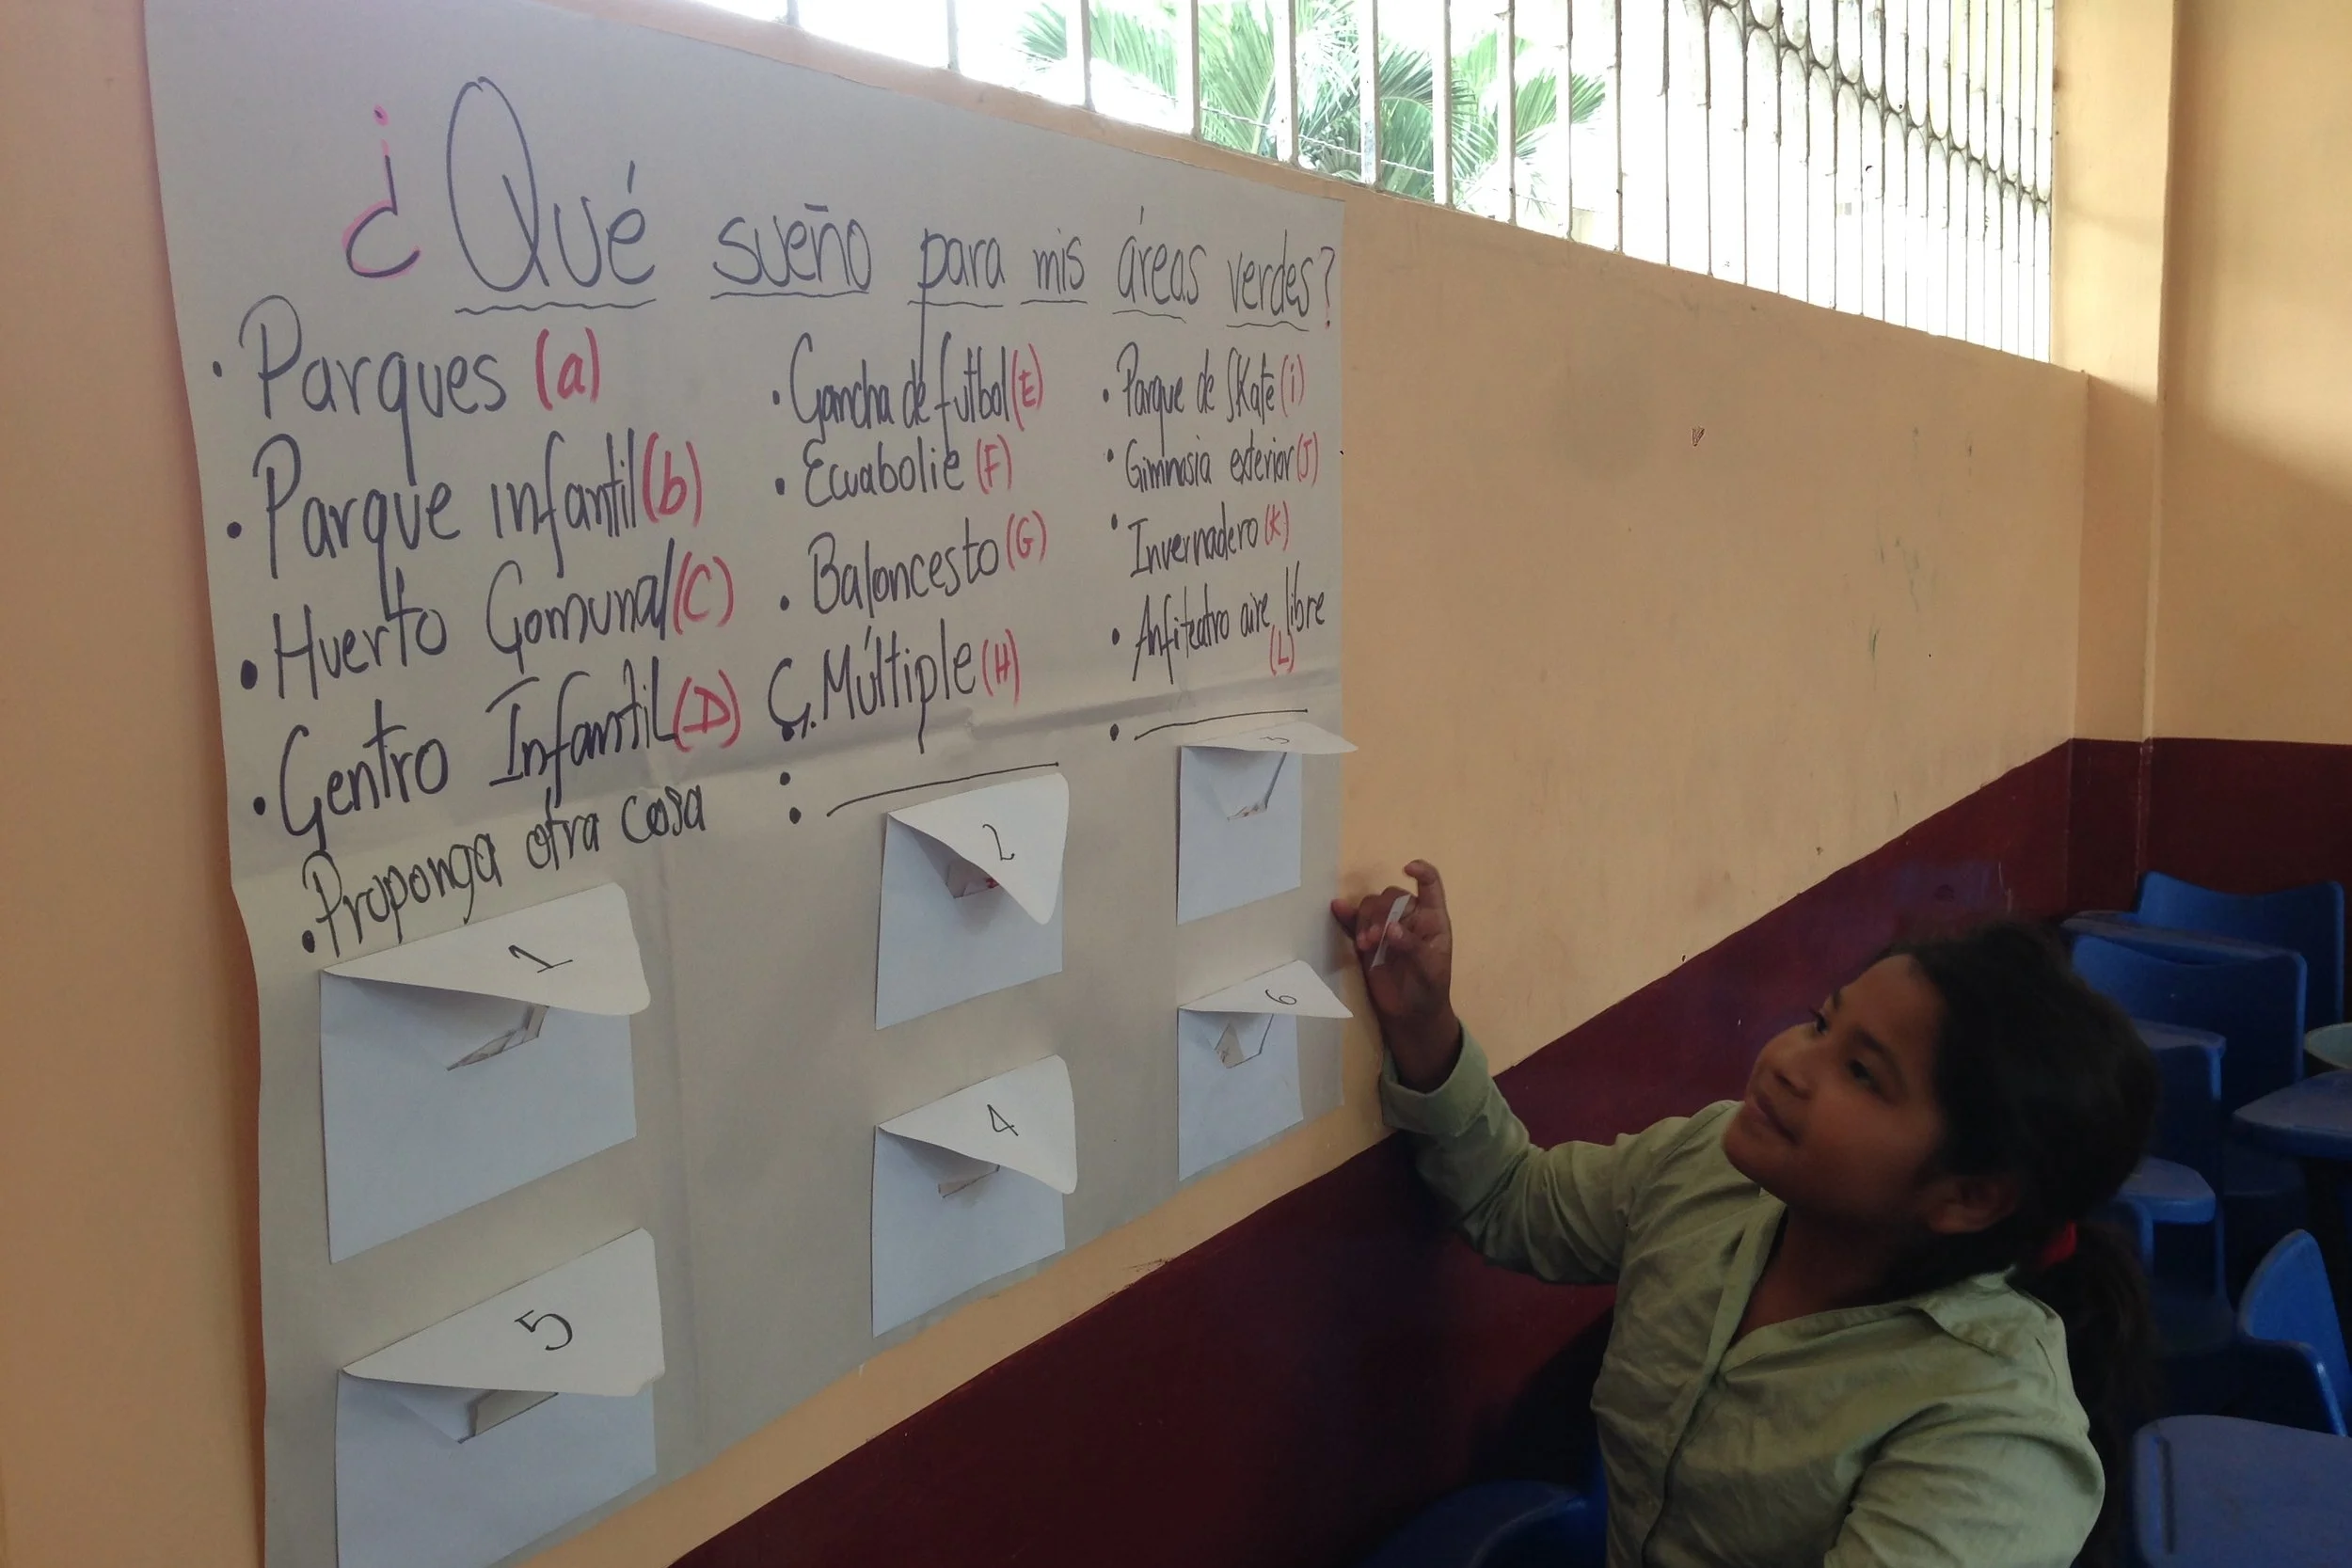 ¿Qué sueño para mis áreas verdes?
• Parques (a)
• Parque infantil (b)
• Huerto Comunal (C)
• Centro Infantil (D)
• Proponga otra cosa
• Cancha de futbol (E)
• Ecuabolie (F)
• Baloncesto (G)
• C. Múltiple (H)
• Parque de Skate (i)
• Gimnasia exterior (J)
• Invernadero (K)
• Anfiteatro aire libre
(L)
1
2
3
4
5
6